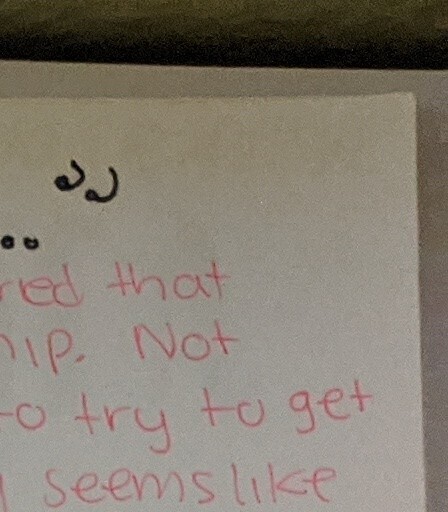 ”
..
red that
hip. Not
to try to get
seems like